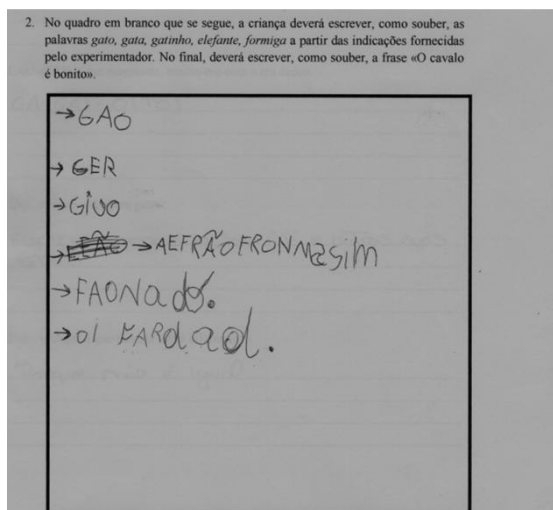 2. No quadro em branco que se segue, a criança deverá escrever, como souber, as
palavras gato, gata, gatinho, elefante, formiga a partir das indicações fornecidas
pelo experimentador. No final, deverá escrever, como souber, a frase «O cavalo
é bonito».
→GAO
→ GER
→GIVO
→ → AEFRÃOFRONMasim
→FAONado.
→OI FARdaol.